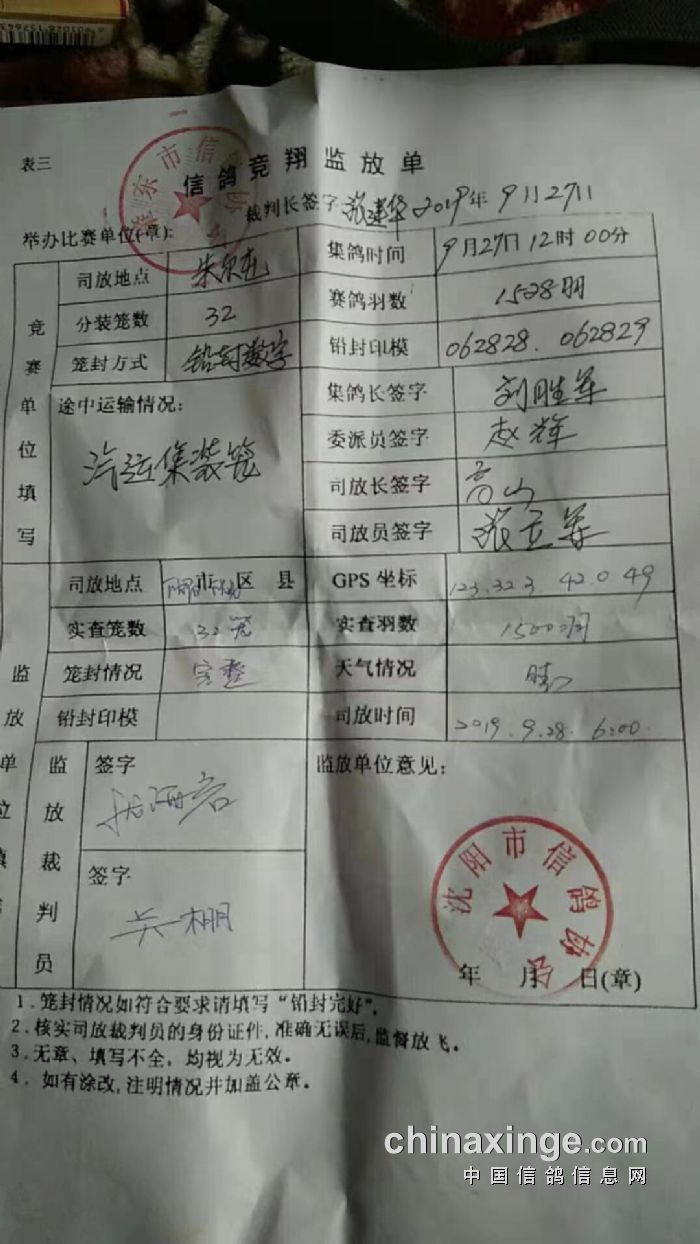 表三
信鸽竞翔监放单
裁判长签字: 张建华 2019年9月27日
举办比赛单位(章):
东市信
竞赛单位填写
司放地点 集鸽时间 9月27日12时00分
分装笼数 32 赛鸽羽数 1528羽
笼封方式 铅封数字 铅封印模 062828. 062829
途中运输情况: 集鸽长签字 刘胜军
汽运集装笼 委派员签字 赵辉
司放长签字 高山
司放员签字 张立军
监放单位填
司放地点 市 区 县 GPS 坐标 123.32 3 42.0 49
实查笼数 32笼 实查羽数 1500羽
笼封情况 完整 天气情况 晴
铅封印模 司放时间 2019.9.28. 6:00.
监放裁判员
签字 监放单位意见:
签字
吴棚
沈阳市信鸽协会
年 月 日(章)
1. 笼封情况如符合要求请填写“铅封完好”。
2. 核实司放裁判员的身份证件,准确无误后,监督放飞。
3. 无章、填写不全, 均视为无效。
4. 如有涂改,注明情况并加盖公章。
chinaxinge.com
中国信鸽信息网